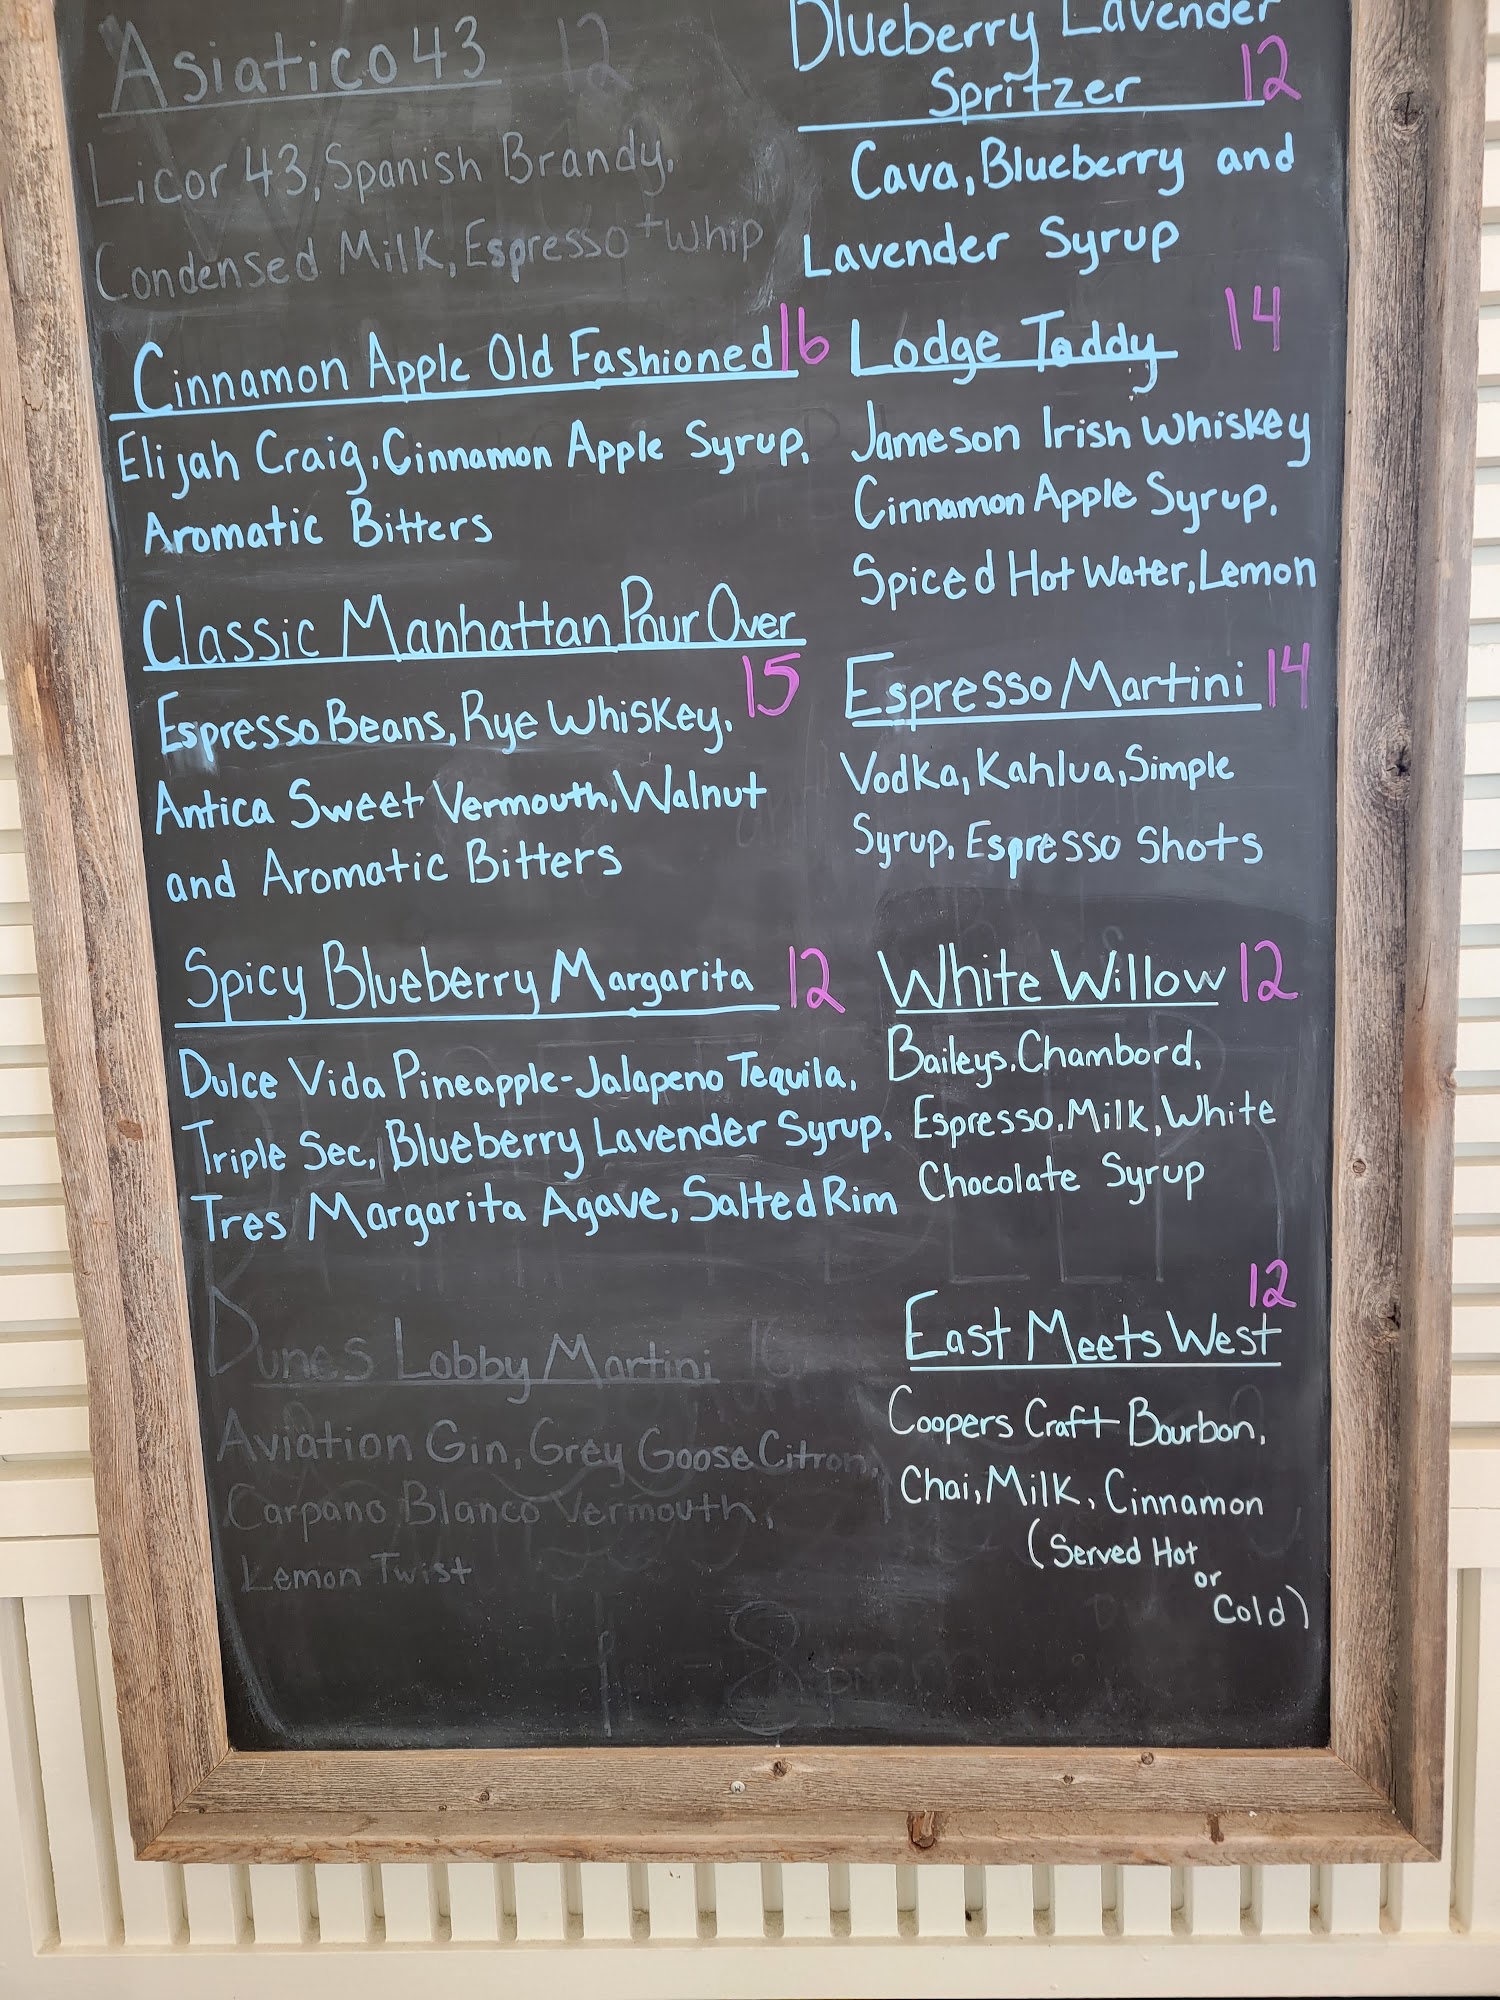 Asiatico 43 12
Licor 43, Spanish Brandy,
Condensed Milk, Espresso + Whip
Cinnamon Apple Old Fashioned 16
Elijah Craig, Cinnamon Apple Syrup,
Aromatic Bitters
Classic Manhattan Pour Over
15
Espresso Beans, Rye Whiskey,
Antica Sweet Vermouth, Walnut
and Aromatic Bitters
Spicy Blueberry Margarita 12
Dulce Vida Pineapple-Jalapeno Tequila,
Triple Sec, Blueberry Lavender Syrup,
Tres Margarita Agave, Salted Rim
Dunes Lobby Martini 16
Aviation Gin, Grey Goose Citron,
Carpano Blanco Vermouth,
Lemon Twist
Blueberry Lavender
Spritzer 12
Cava, Blueberry and
Lavender Syrup
Lodge Toddy 14
Jameson Irish Whiskey
Cinnamon Apple Syrup,
Spiced Hot Water, Lemon
Espresso Martini 14
Vodka, Kahlua, Simple
Syrup, Espresso Shots
White Willow 12
Baileys, Chambord,
Espresso, Milk, White
Chocolate Syrup
12
East Meets West
Coopers Craft Bourbon,
Chai, Milk, Cinnamon
(Served Hot
or
Cold)